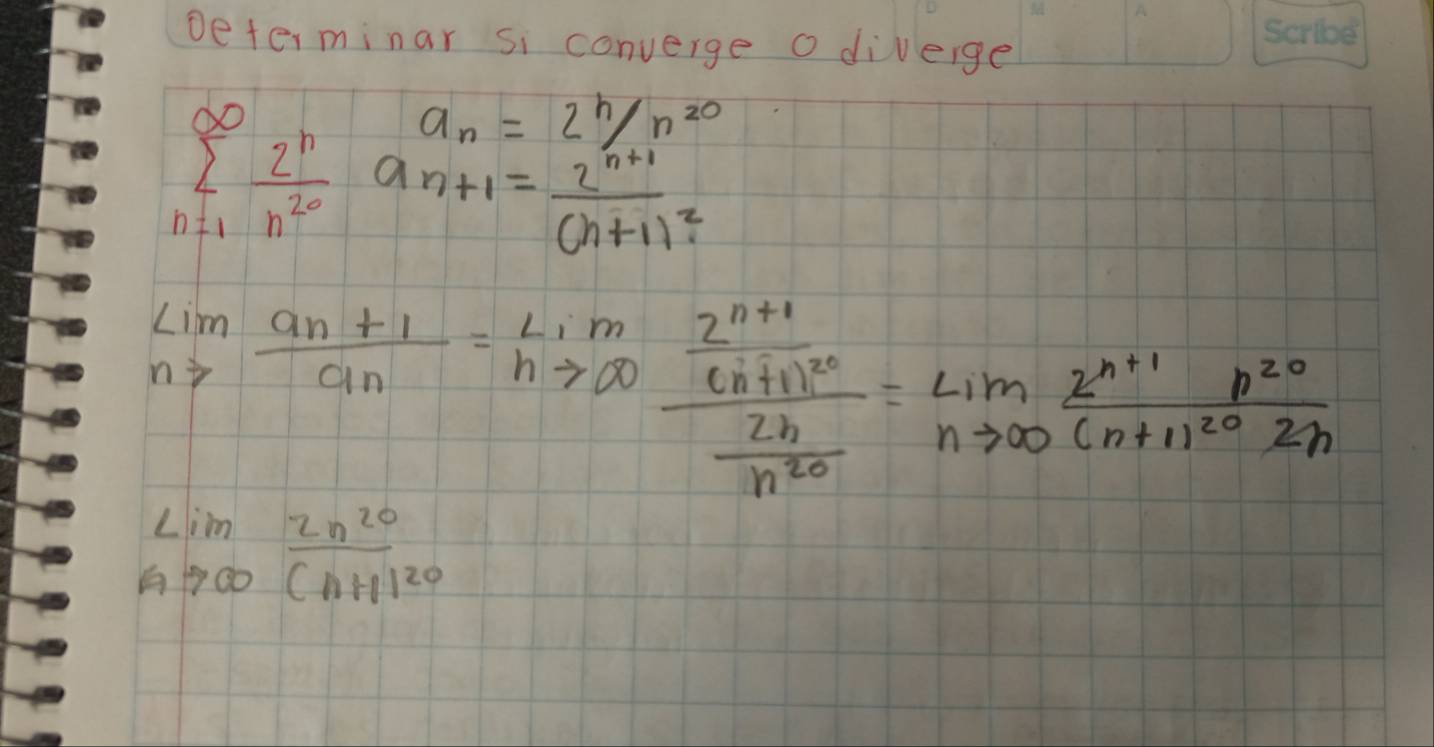 D M A
Scribe
Determinar si converge o diverge
∞
Σ 2^n / n^20
n=1
a_n = 2^n/n^20
a_n+1 = 2^n+1 / (n+1)^2
Lim n→ an+1 / an = Lim n→∞ (2^n+1 / (n+1)^20) / (2n / n^20) = Lim n→∞ 2^n+1 n^20 / (n+1)^20 2n
Lim n→∞ 2n^20 / (n+1)^20